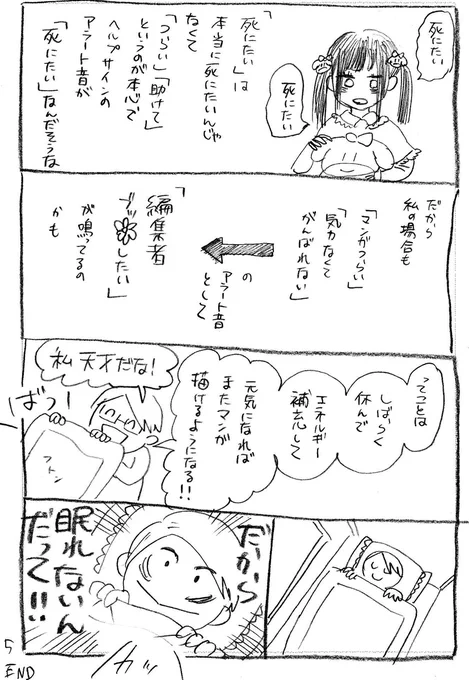 死にたい
死にたい
「死にたい」は
本当に死にたいんじゃ
なくて
「つらい」「助けて」
というのが本心で
ヘルプサインの
アラート音が
「死にたい」なんだそうな
だから
私の場合も
「マンガつらい」
「気力なくて
がんばれない」
の
アラート音
として
「編集者
ブッ したい」
が鳴ってるの
かも
ってことは
しばらく
休んで
エネルギー
補充して
元気になれば
またマンガ
描けるようになる!!
私天才だな!
ばっ
フトン
だから
眠れないん
だって!!!
カッ
5
END